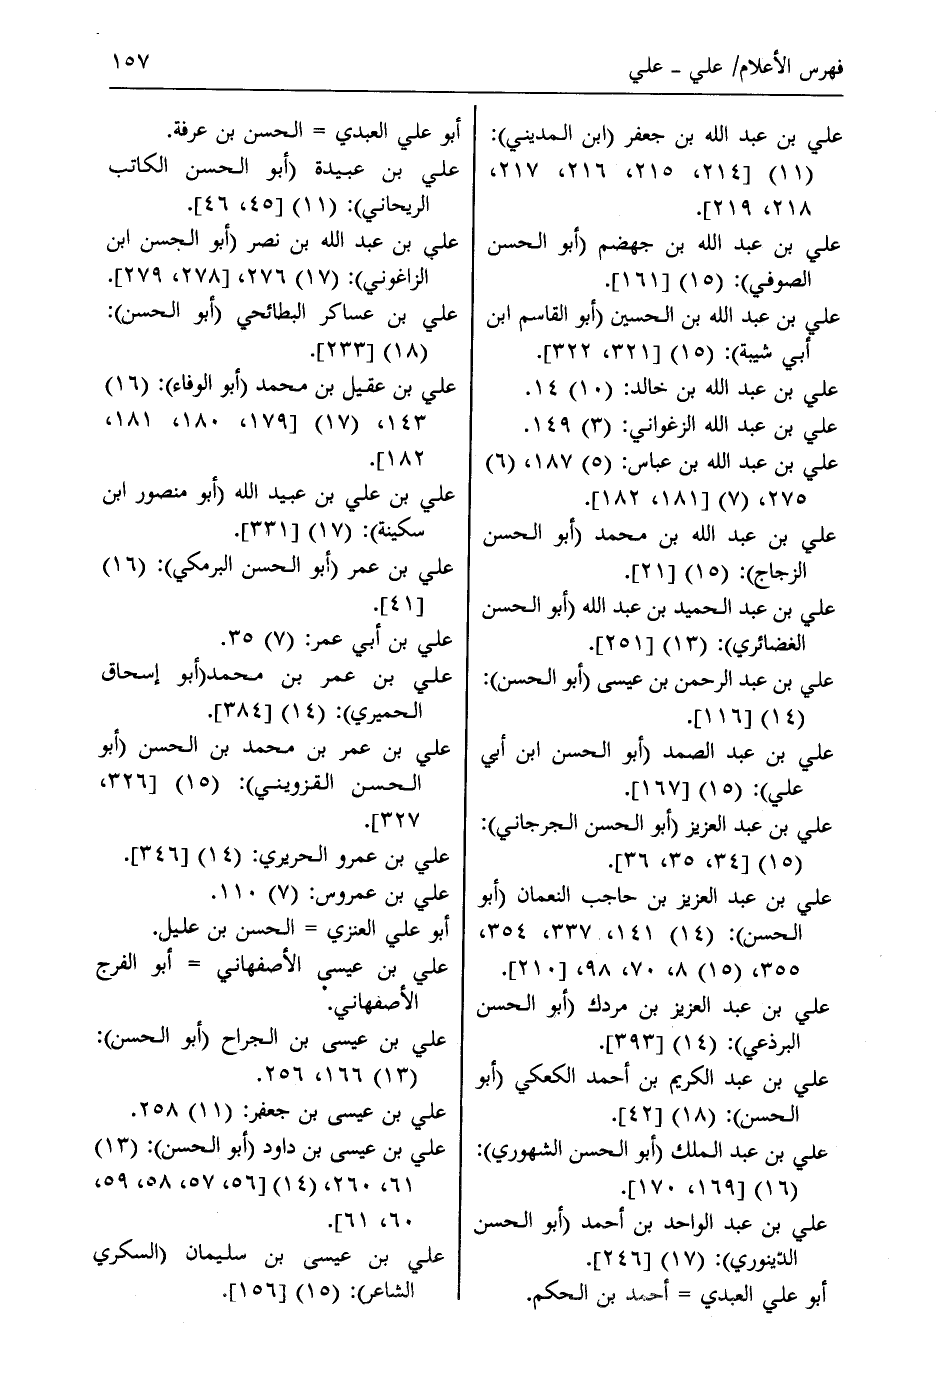 فهرس الأعلام/ علي ـ علي
١٥٧
علي بن عبد الله بن جعفر (ابن المديني):
(١١) [٢١٤، ٢١٥، ٢١٦، ٢١٧،
٢١٨، ٢١٩].
علي بن عبد الله بن جهضم (أبو الحسن
الصوفي): (١٥) [١٦١].
علي بن عبد الله بن الحسين (أبو القاسم ابن
أبي شيبة): (١٥) [٣٢١، ٣٢٢].
علي بن عبد الله بن خالد: (١٠) ١٤.
علي بن عبد الله الزغواني: (٣) ١٤٩.
علي بن عبد الله بن عباس: (٥) ١٨٧، (٦)
٢٧٥، (٧) [١٨١، ١٨٢].
علي بن عبد الله بن محمد (أبو الحسن
الزجاج): (١٥) [٢١].
علي بن عبد الحميد بن عبد الله (أبو الحسن
الغضائري): (١٣) [٢٥١].
علي بن عبد الرحمن بن عيسى (أبو الحسن):
(١٤) [١١٦].
علي بن عبد الصمد (أبو الحسن ابن أبي
علي): (١٥) [١٦٧].
علي بن عبد العزيز (أبو الحسن الجرجاني):
(١٥) [٣٤، ٣٥، ٣٦].
علي بن عبد العزيز بن حاجب النعمان (أبو
الحسن): (١٤) ١٤١، ٣٣٧، ٣٥٤،
٣٥٥، (١٥) ٨، ٧٠، ٩٨، [٢١٠].
علي بن عبد العزيز بن مردك (أبو الحسن
البرذعي): (١٤) [٣٩٣].
علي بن عبد الكريم بن أحمد الكعكي (أبو
الحسن): (١٨) [٤٢].
علي بن عبد الملك (أبو الحسن الشهوري):
(١٦) [١٦٩، ١٧٠].
علي بن عبد الواحد بن أحمد (أبو الحسن
الدّينوري): (١٧) [٢٤٦].
أبو علي العبدي = أحمد بن الحكم.
أبو علي العبدي = الحسن بن عرفة.
علي بن عبيدة (أبو الحسن الكاتب
الريحاني): (١١) [٤٥، ٤٦].
علي بن عبد الله بن نصر (أبو الحسن ابن
الزاغوني): (١٧) ٢٧٦، [٢٧٨، ٢٧٩].
علي بن عساكر البطائحي (أبو الحسن):
(١٨) [٢٣٣].
علي بن عقيل بن محمد (أبو الوفاء): (١٦)
١٤٣، (١٧) [١٧٩، ١٨٠، ١٨١،
١٨٢].
علي بن علي بن عبيد الله (أبو منصور ابن
سكينة): (١٧) [٣٣١].
علي بن عمر (أبو الحسن البرمكي): (١٦)
[٤١].
علي بن أبي عمر: (٧) ٣٥.
علي بن عمر بن محمد(أبو إسحاق
الحميري): (١٤) [٣٨٤].
علي بن عمر بن محمد بن الحسن (أبو
الحسن القزويني): (١٥) [٣٢٦،
٣٢٧].
علي بن عمرو الحريري: (١٤) [٣٤٦].
علي بن عمروس: (٧) ١١٠.
أبو علي العنزي = الحسن بن عليل.
علي بن عيسى الأصفهاني = أبو الفرج
الأصفهاني.
علي بن عيسى بن الجراح (أبو الحسن):
(١٣) ١٦٦، ٢٥٦.
علي بن عيسى بن جعفر: (١١) ٢٥٨.
علي بن عيسى بن داود (أبو الحسن): (١٣)
٦١، ٢٦٠، (١٤) [٥٦، ٥٧، ٥٨، ٥٩،
٦٠، ٦١].
علي بن عيسى بن سليمان (السكري
الشاعر): (١٥) [١٥٦].